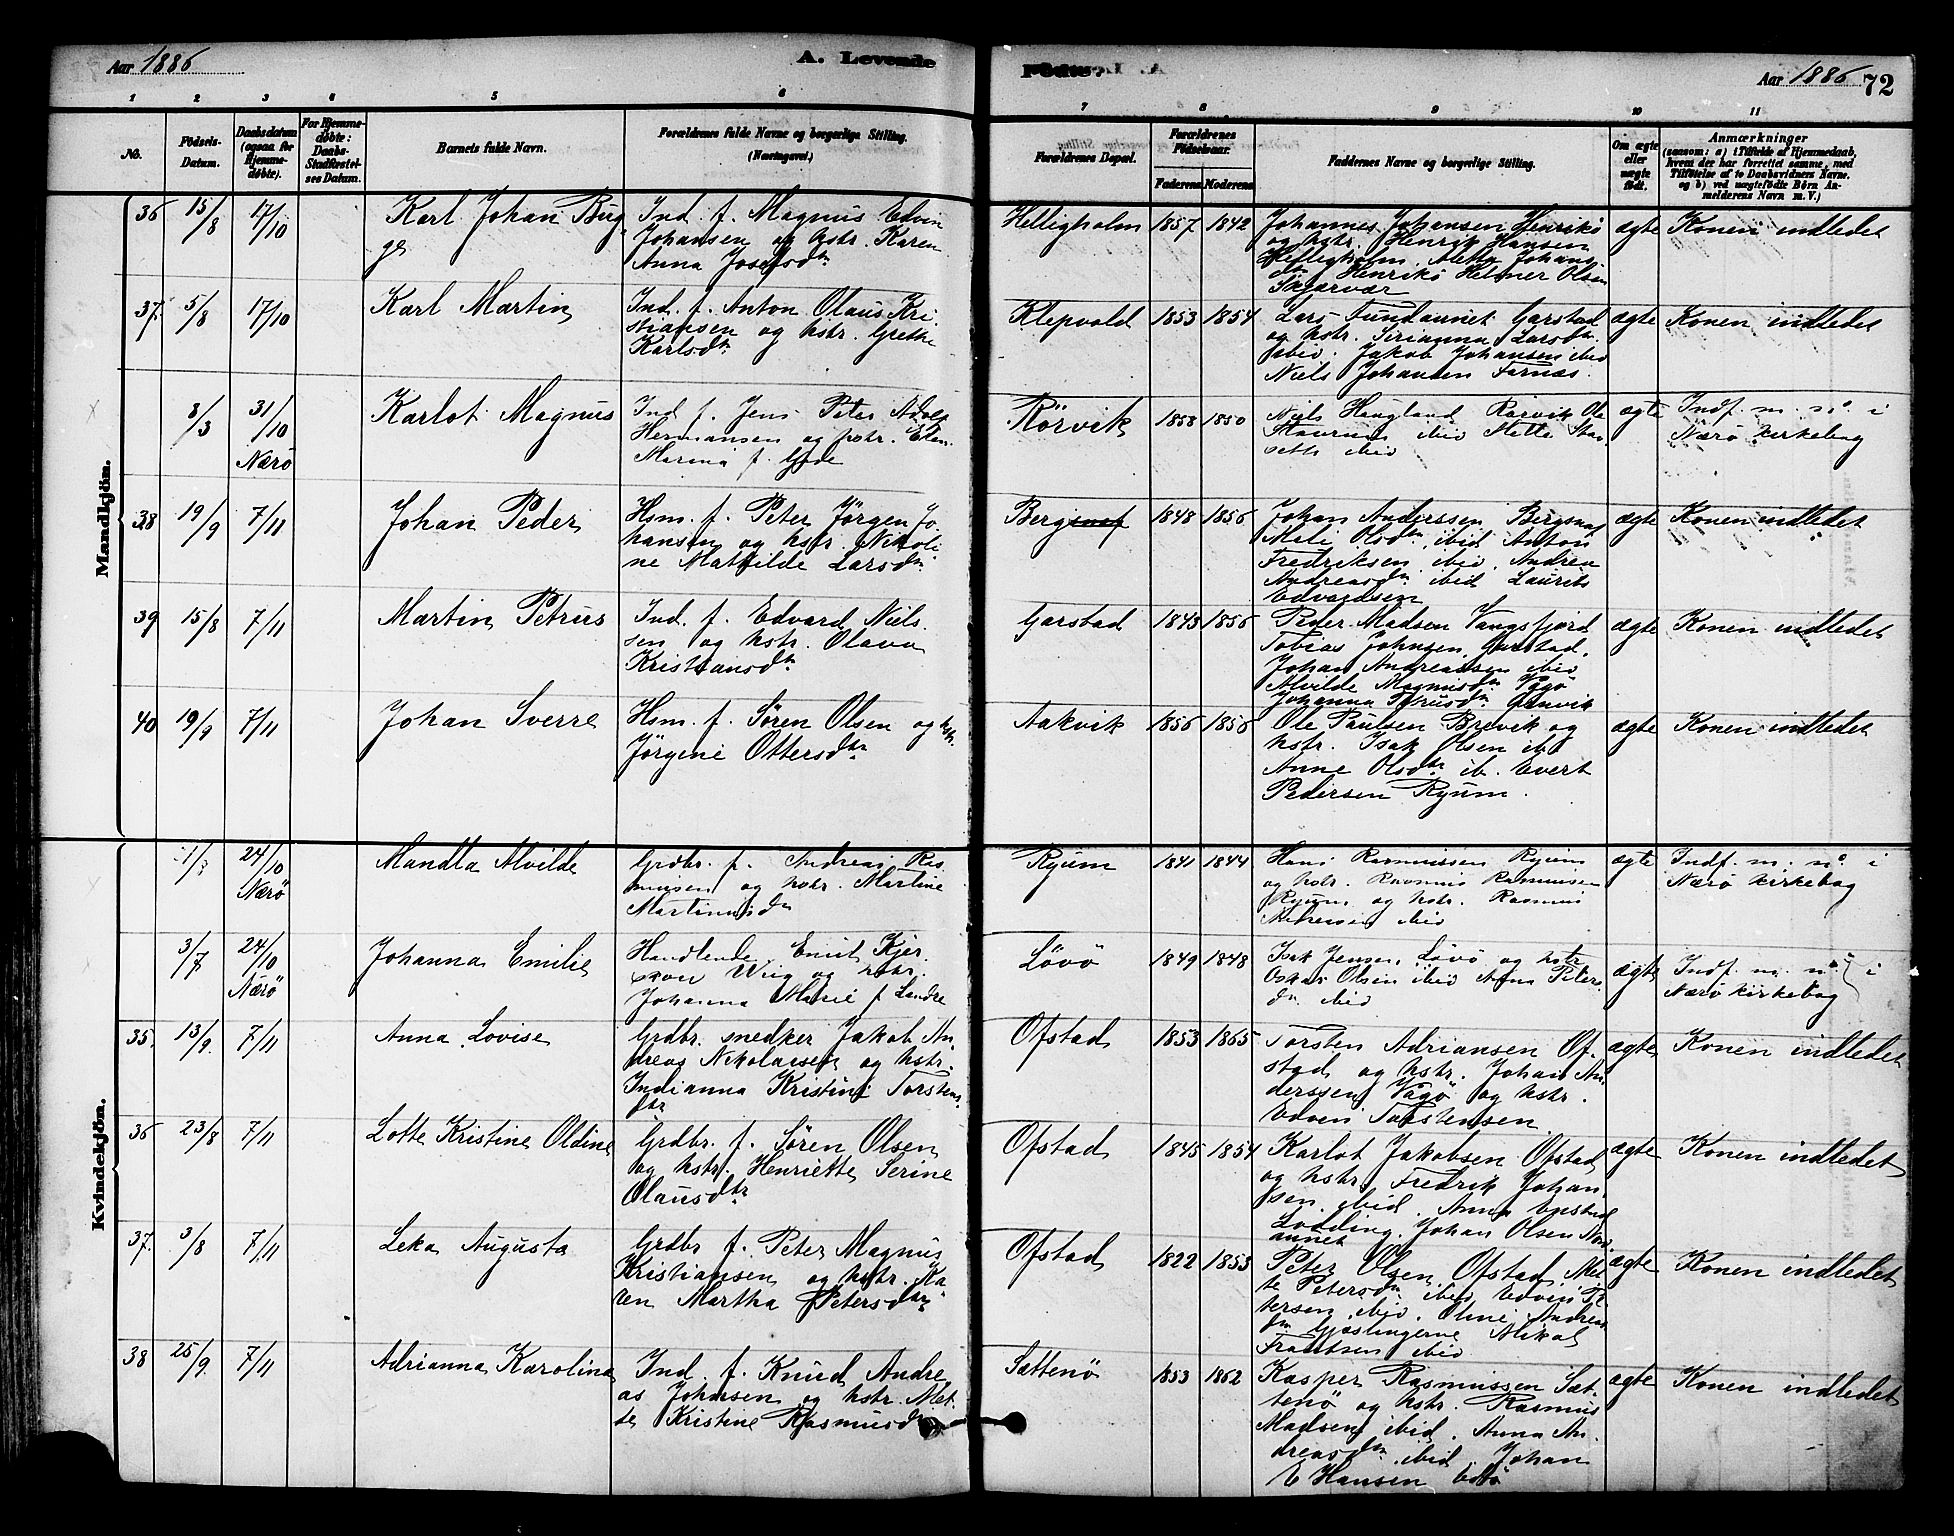 Aar 1886
A. Levende
Fødte.
Aar 1886 72
1 2 3 4 5 6 7 8 9 10 11
No.
Födsels-
Datum.
Daabsdatum
(ogsaa for
Hjemme-
døbte).
For Hjemme-
døbte:
Daabs-
Stadfæstel-
ses Datum.
Barnets fulde Navn.
Forældrenes fulde Navne og borgerlige Stilling.
(Næringsvei.)
Forældrenes Bopæl.
Forældrenes
Födselsaar.
Faderens Moderens
Faddernes Navne og borgerlige Stilling.
Om ægte
eller
uægte
født.
Anmærkninger
(saasom: a) i Tilfælde af Hjemmedaab,
hvem der har forrettet samme, med
Tilføielse af to Daabsvidners Navne.
og b) ved uægtefødte Börn An-
melderens Navn m. V.)
Mandkjön.
36 15/8 17/10 Karl Johan Bug
ge
Ind. f. Magnus Edvin
Johansen og hstr. Karen
Anna Josefsdtr
Helligholm 1857 1842
Johannes Johansen Henrikö
og hstr. Henrik Hansen
Helligholm, Aletta Johans
dtr Henrikö Helmer Olsen
Skjærvær
ægte Konen indledet
37. 5/8 17/10 Karl Martin
Ind. f. Anton Olaus Kri
stiansen og hstr. Grethe
Karlsdtr
Klepvold 1853 1854
Lars Garstad
og hstr. Sirianna Larsdtr
ibid. Jakob Johansen ibid
Niels Johansen Farnæs.
ægte Konen indledet
8/3 31/10 Nærö Karlot Magnus
Ind f. Jens Peter
Hermansen og hstr. Elen
Marina f. Gode
Rörvik 1858 1850
Niels Haugland Rörvik Ole
ibid
ibid
ægte Indf. m. no. i
Nærö kirkebog
38 19/9 7/11 Johan Peder
Hsm. f. Peter Jørgen Jo
hansen og hstr. Nikoli
ne Mathilde Larsdtr
Bergsnef 1848 1856
Johan Anderssen Bergsnef
Mali Olsdtr ibid Anton
Fredriksen ibid. Andrea
Andreasdtr ibid Laurits
Edvardsen
ægte Konen indledet
39 15/8 7/11 Martin Petrus
Ind. f. Edvard Niels
sen og hstr. Olava
Kristiansdtr
Garstad 1843 1856
Peder Madsen Vangsfjord
Tobias Johnsen Garstad,
Johan Andreassen ibid
Alvilde Magnusdtr Vågö
Johanna Petrusdtr
ægte Konen indledet
40 19/9 7/11 Johan Sverre
Hsm. f. Søren Olsen og hstr.
Jörgine Ottersdtr
Aakvik 1856 1856
Ole Paulsen Brevik og
hstr. Isak Olsen ib.
Anne Olsdtr ib. Evert
Pedersen Ryum.
ægte Konen indledet
Kvindekjön.
24/10 Nærö Mandta Alvilde
Grdbr. f. Andreas Ras
musen og hstr. Martine
Martinusdtr
Ryum 1841 1844
Hans Rasmussen Ryum
og hstr. Rasmus Rasmusen
Ryum og hstr. Rasmus
ibid
ægte Indf. m. no. i
Nærö kirkebog
3/7 24/10 Nærö Johanna Emilie
Handlende Emil Kjer
skou Wiig og hstr.
Johanna Marie f Landre
Lövö 1849 1848
Isak Jensen Lövö og hstr
Oskar Olsen ibid Anna Peters
dtr ibid
ægte Indf. m. no. i
Nærö kirkebog
35. 13/9. 7/11 Anna Lovise
Grdbr. snedker Jakob An
dreas Nikolaisen og hstr.
Indianna Kristine Torstens
dtr
Ofstad 1853 1865
Torsten Adriansen Of-
stad og hstr. Johan An
derssen Vågö og hstr.
Edvin Torstensen.
ægte Konen indledet
36 23/8 7/11 Lotte Kristine Oldine
Grdbr. f. Søren Olsen
og hstr. Henriette Serine
Olausdtr
Ofstad 1845 1854
Karlot Jakobsen Ofstad
og hstr. Fredrik Johan
sen ibid. Anna
Johan Olsen
ægte Konen indledet
37. 3/8 7/11 Leka Augusta
Grdbr f. Peter Magnus
Kristiansen og hstr. Ka
ren Martha Petersdtr
Ofstad 1822 1853
Peter Olsen Ofstad Met
te Petersdtr ibid Edvin Pe
tersen ibid. Oline Andreas
dtr Gjæslingerne
ibid
ægte Konen indledet
38 25/9. 7/11 Adrianna Karolina
Ind. f. Knud Andre
as Johansen og hstr. Met-
te Kristine Rasmusdtr
Sættenö 1853 1862
Kasper Rasmussen Sæt-
tenö og hstr. Rasmus
Madsen ibid. Anna An-
dreasdtr ibid. Johan
E Hansen
ægte Konen indledet